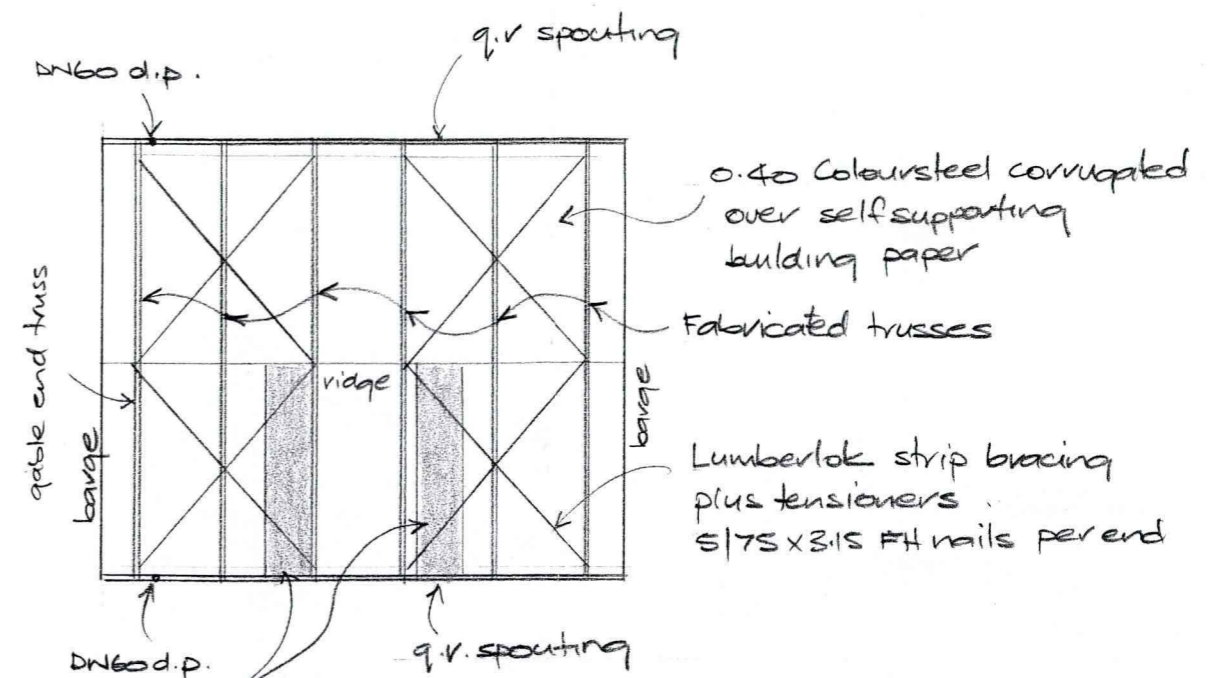 q.r spouting
DN60 d.p.
0.40 Coloursteel corrugated
over selfsupporting
building paper
Fabricated trusses
gable end truss
barge
ridge
barge
Lumberlok strip bracing
plus tensioners.
5/75 x 3.15 FH nails per end
DN60 d.p.
q.r. spouting